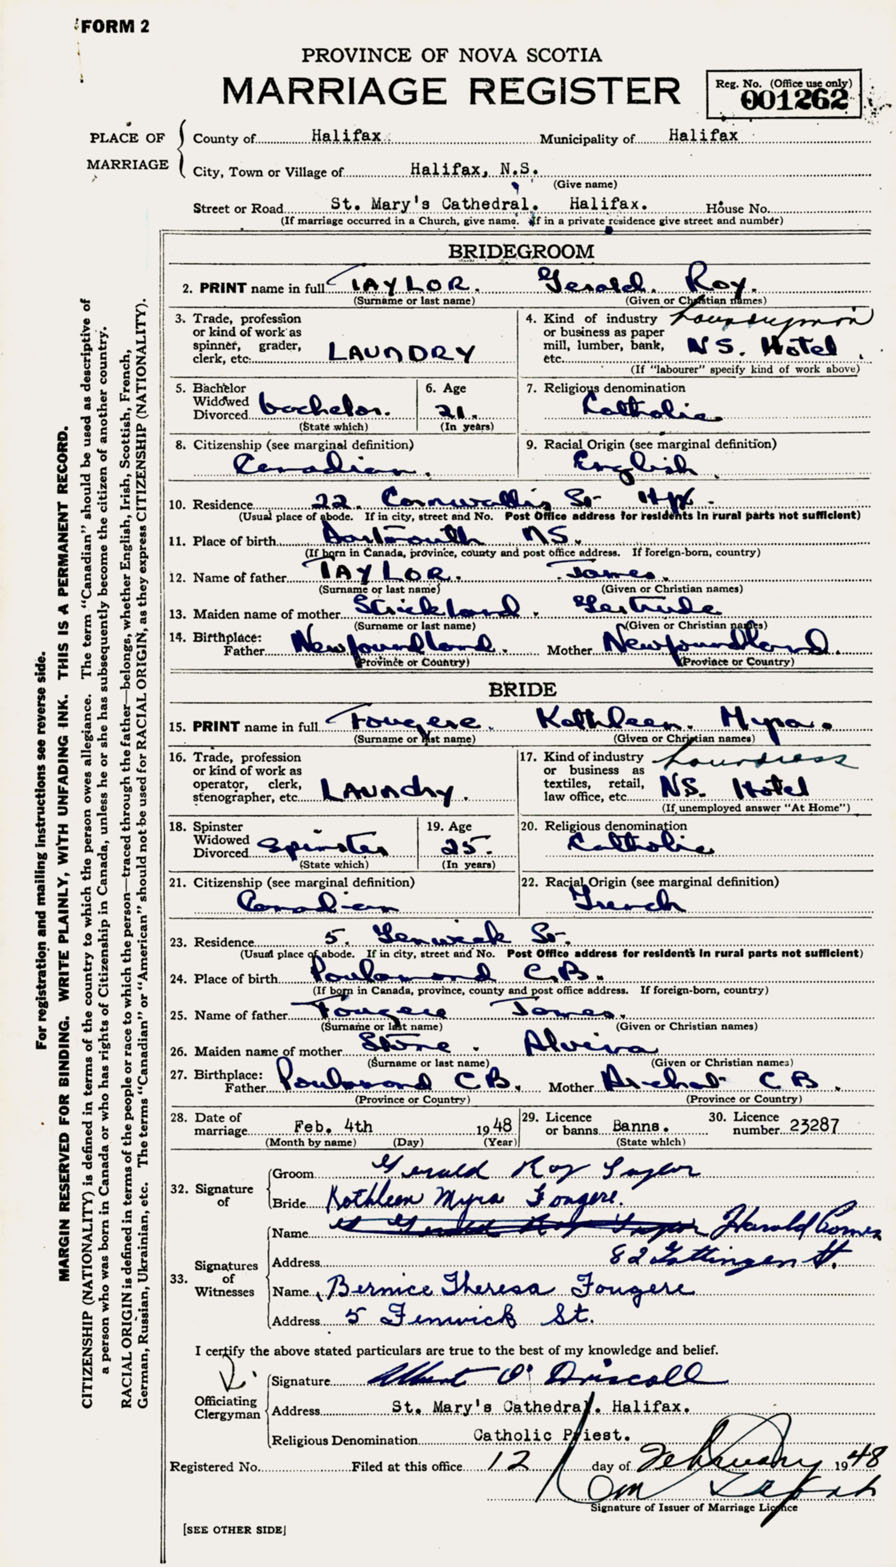 FORM 2
PROVINCE OF NOVA SCOTIA
MARRIAGE REGISTER
Reg. No. (Office use only)
001262
PLACE OF MARRIAGE
County of Halifax. Municipality of Halifax
City, Town or Village of Halifax, N.S.
(Give name)
Street or Road St. Mary's Cathedral. Halifax. House No.
(If marriage occurred in a Church, give name. If in a private residence give street and number)
BRIDEGROOM
2. PRINT name in full TAYLOR. Gerald. Roy.
(Surname or last name) (Given or Christian names)
3. Trade, profession or kind of work as spinner, grader, clerk, etc. LAUNDRY
4. Kind of industry or business as paper mill, lumber, bank, etc. Laundryman N.S. Hotel
(If "labourer" specify kind of work above)
5. Bachelor Widowed Divorced bachelor.
(State which)
6. Age 21.
(In years)
7. Religious denomination Catholic
8. Citizenship (see marginal definition) Canadian.
9. Racial Origin (see marginal definition) English
10. Residence 22 Cornwallis St Hfx.
(Usual place of abode. If in city, street and No. Post Office address for residents in rural parts not sufficient)
11. Place of birth Dartmouth NS.
(If born in Canada, province, county and post office address. If foreign-born, country)
12. Name of father TAYLOR. James.
(Surname or last name) (Given or Christian names)
13. Maiden name of mother Strickland. Gertrude
(Surname or last name) (Given or Christian names)
14. Birthplace:
Father Newfoundland. Mother Newfoundland.
(Province or Country) (Province or Country)
BRIDE
15. PRINT name in full Fougere. Kathleen. Myra.
(Surname or last name) (Given or Christian names)
16. Trade, profession or kind of work as operator, clerk, stenographer, etc. LAundry.
17. Kind of industry or business as textiles, retail, law office, etc. Laundress NS. Hotel
(If unemployed answer "At Home")
18. Spinster Widowed Divorced Spinster
(State which)
19. Age 25.
(In years)
20. Religious denomination Catholic
21. Citizenship (see marginal definition) Canadian
22. Racial Origin (see marginal definition) French
23. Residence 5. Fenwick St.
(Usual place of abode. If in city, street and No. Post Office address for residents in rural parts not sufficient)
24. Place of birth Poulamond C.B.
(If born in Canada, province, county and post office address. If foreign-born, country)
25. Name of father Fougere James.
(Surname or last name) (Given or Christian names)
26. Maiden name of mother Stone. Alvina
(Surname or last name) (Given or Christian names)
27. Birthplace:
Father Poulamond C B. Mother Arichat C B.
(Province or Country) (Province or Country)
28. Date of marriage Feb. 4th 1948
(Month by name) (Day) (Year)
29. Licence or banns Banns.
(State which)
30. Licence number 23287
32. Signature of
Groom Gerald Roy Taylor
Bride Kathleen Myra Fougere.
33. Signatures of Witnesses
Name Harold
Address 82 Gottingen St.
Name Bernice Theresa Fougere
Address 5 Fenwick St.
I certify the above stated particulars are true to the best of my knowledge and belief.
Officiating Clergyman
Signature Albert O'Driscoll
Address St. Mary's Cathedral. Halifax.
Religious Denomination Catholic Priest.
Registered No. Filed at this office 12 day of February 1948
Signature of Issuer of Marriage Licence
[SEE OTHER SIDE]
For registration and mailing instructions see reverse side.
MARGIN RESERVED FOR BINDING. WRITE PLAINLY, WITH UNFADING INK. THIS IS A PERMANENT RECORD.
CITIZENSHIP (NATIONALITY) is defined in terms of the country to which the person owes allegiance. The term "Canadian" should be used as descriptive of
a person who was born in Canada or who has rights of Citizenship in Canada, unless he or she has subsequently become the citizen of another country.
RACIAL ORIGIN is defined in terms of the people or race to which the person—traced through the father—belongs, whether English, Irish, Scottish, French,
German, Russian, Ukrainian, etc. The terms "Canadian" or "American" should not be used for RACIAL ORIGIN, as they express CITIZENSHIP (NATIONALITY).